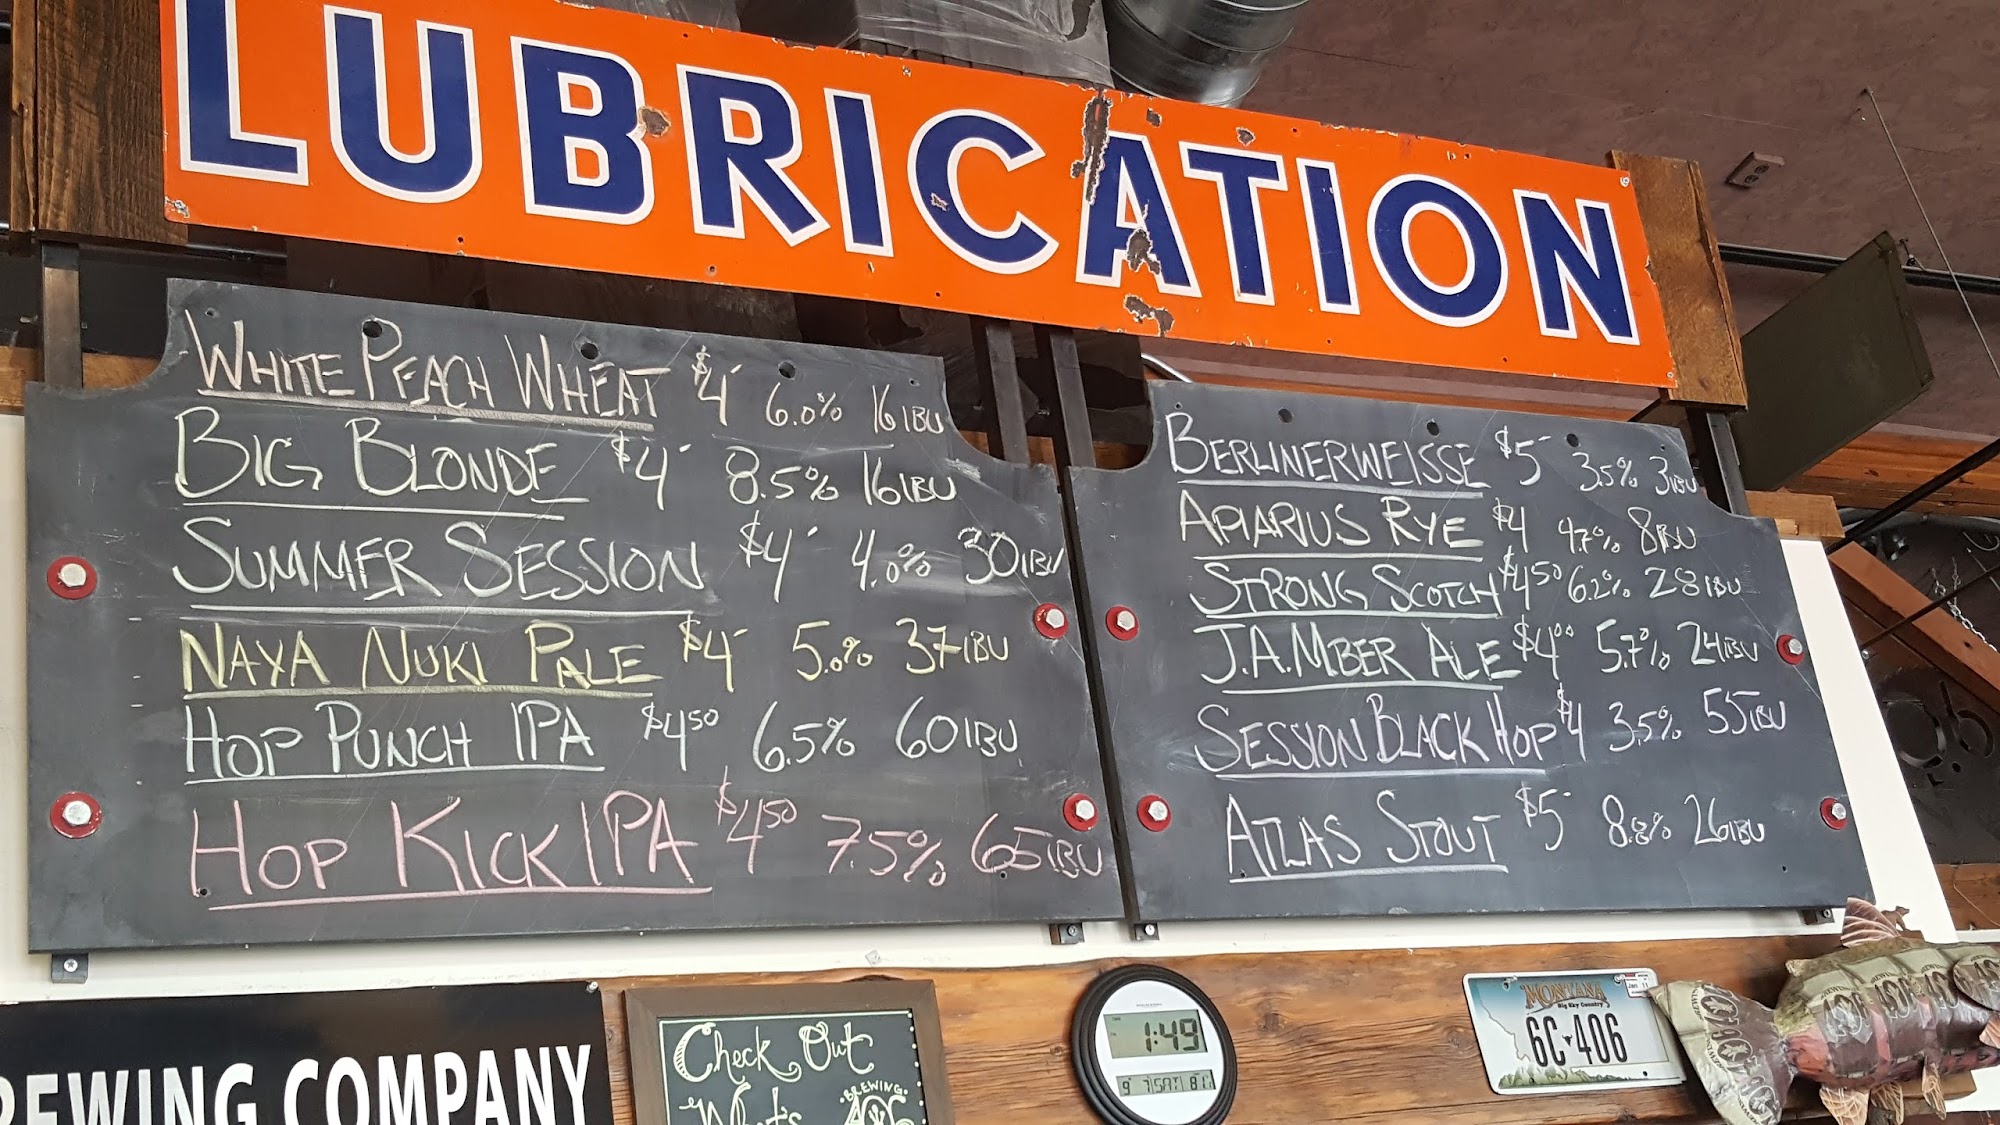 LUBRICATION
WHITE PEACH WHEAT $4- 6.0% 16 IBU
BIG BLONDE $4- 8.5% 16 IBU
SUMMER SESSION $4- 4.0% 30 IBU
NAYA NUKI PALE $4- 5.0% 37 IBU
HOP PUNCH IPA $4.50 6.5% 60 IBU
HOP KICK IPA $4.50 7.5% 65 IBU
BERLINERWEISSE $5- 3.5% 3 IBU
APIARIUS RYE $4 4.7% 8 IBU
STRONG SCOTCH $4.50 6.2% 28 IBU
J.A.MBER ALE $4.00 5.7% 24 IBU
SESSION BLACK HOP $4 3.5% 55 IBU
ATLAS STOUT $5- 8.8% 26 IBU
REWING COMPANY
Check Out
What's
BREWING
406
1:49
9 7 SAT 81
MONTANA
Big Sky Country
Jan 11
6C 406